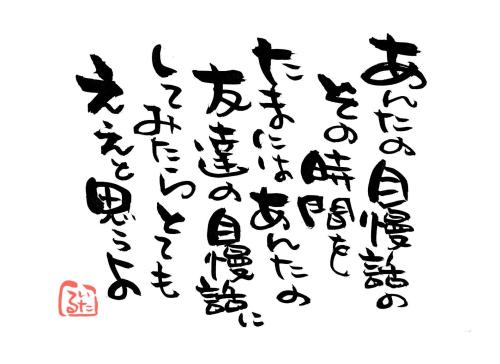 あんたの自慢話の
その時間を
たまにはあんたの
友達の自慢話に
してみたらとても
ええと思うよ
いたる